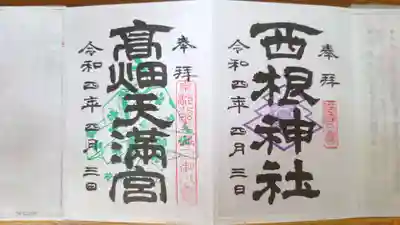 奉拝
西根神社
令和四年四月三日
奉拝
高畑天満宮
令和四年四月三日